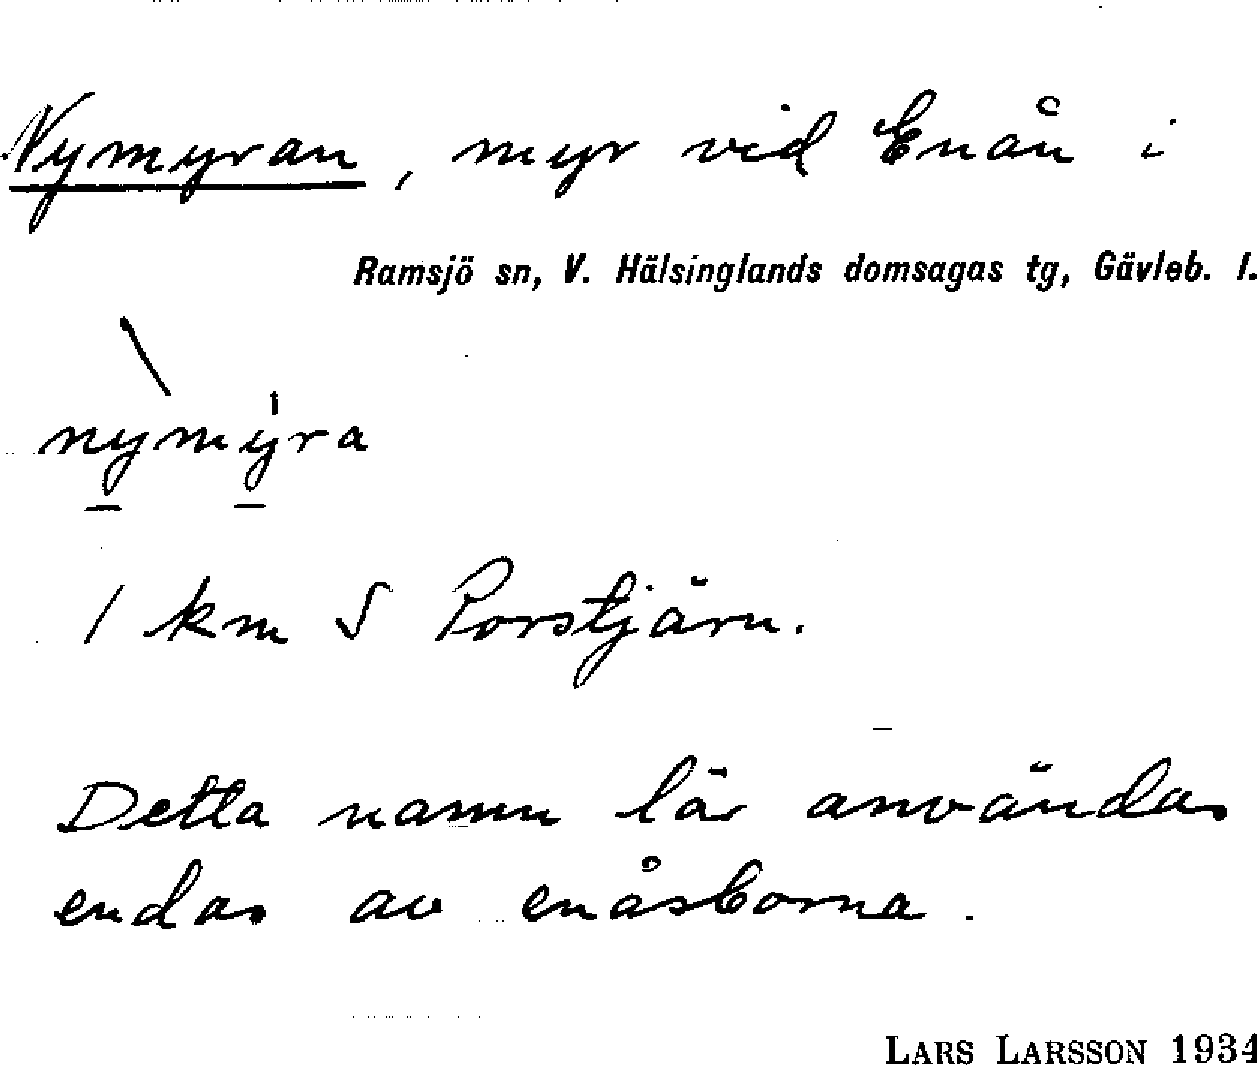 Nymyran, myr vid Enån i
Ramsjö sn, V. Hälsinglands domsagas tg, Gävleb. l.
nymyra
1 km S Porstjärn.
Detta namn lär användas
endas av enåsborna.
LARS LARSSON 1934